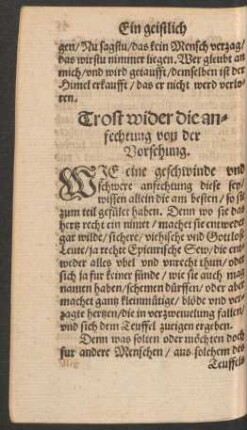 Ein geistlich
gen/ Nu sagstu/ das kein Mensch verzag/
das wirstu nimmer liegen. Wer gleubt an
mich/ vnd wird getaufft/ demselben ist der
Himel erkaufft/ das er nicht werd verlo-
ren.
Trost wider die an-
fechtung von der
Vorsehung.
WIE eine geschwinde vnd
schwere anfechtung diese sey/
wissen allein die am besten/ so sie
zum teil gefület haben. Denn wo sie das
hertz recht ein nimet/ machet sie entweder
gar wilde/ sichere/ viehische vnd Gottlose
Leute/ ja rechte Epicurische Sew/ die ent-
weder alles vbel vnd vnrecht thun/ oder
sich ja fur keiner sünde/ wie sie auch mag
namen haben/ schemen dürffen/ oder aber
machet gantz kleinmütige/ blöde vnd ver-
zagte hertzen/ die in verzweiuelung fallen/
vnd sich dem Teuffel zueigen ergeben.
Denn was solten oder möchten doch
fur andere Menschen/ aus solchem des
Teuffels